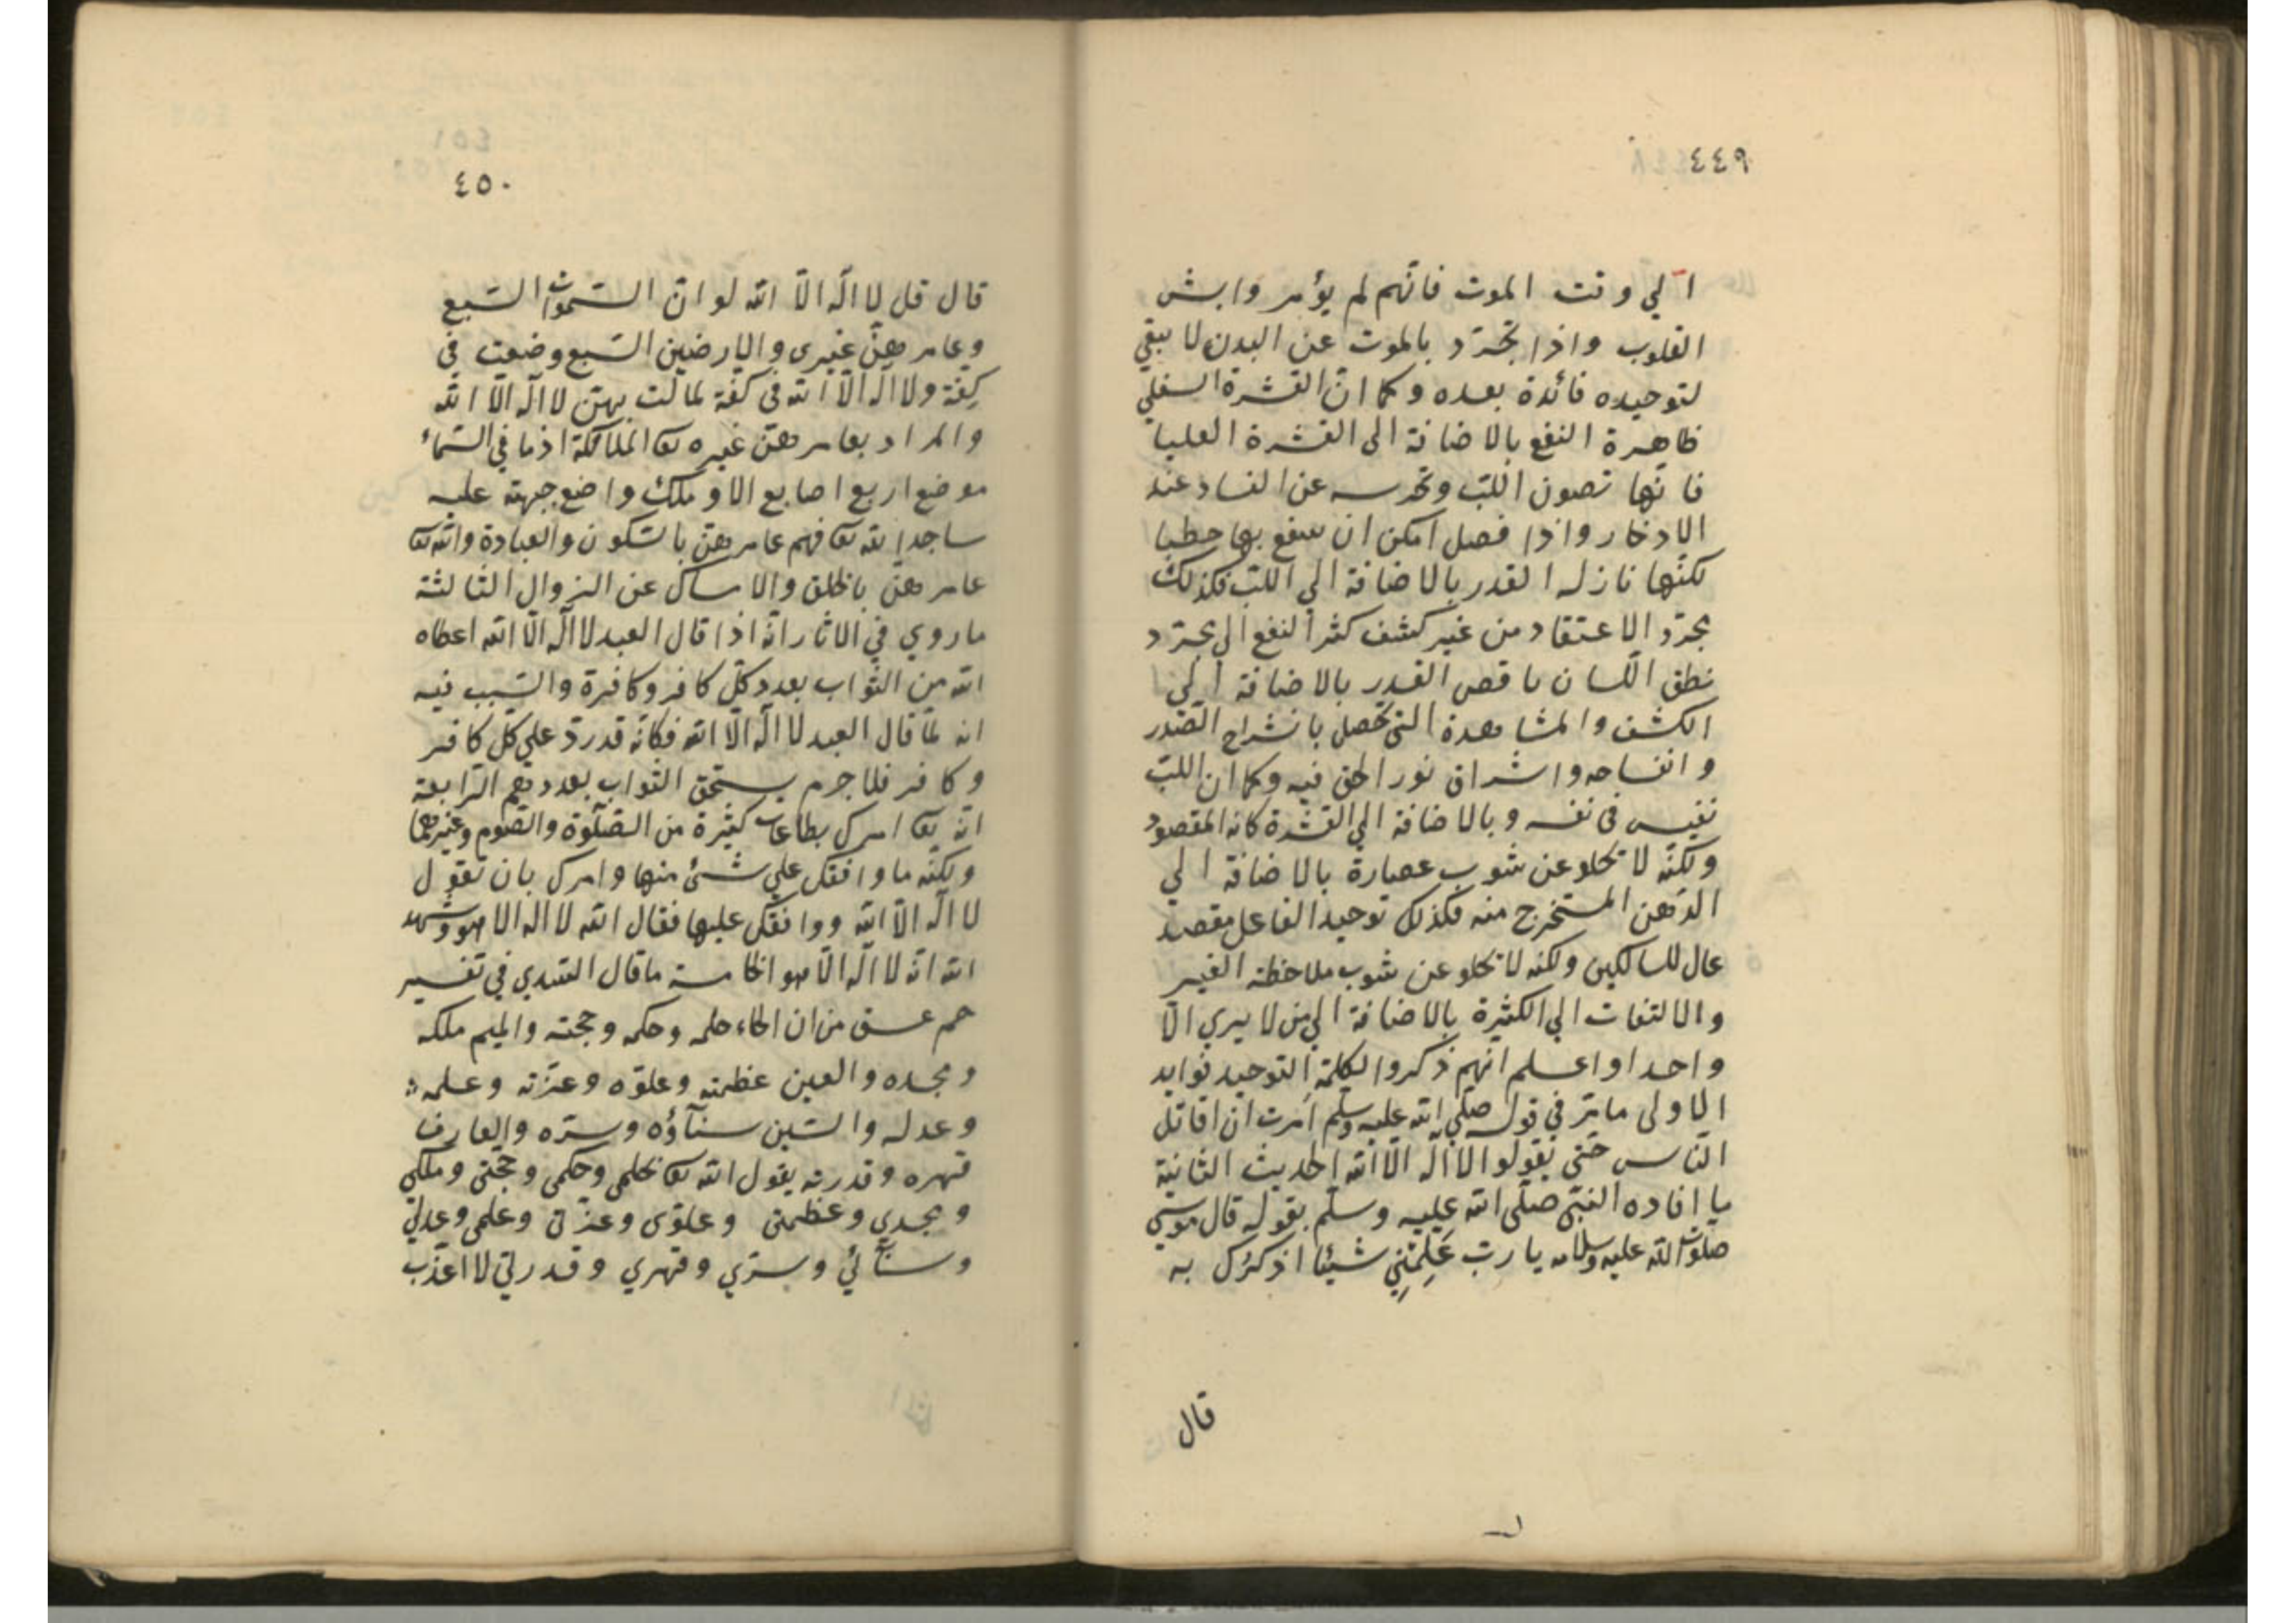 ٤٤٩
الي وقت الموت فانّهم لم يؤمروا بشق
القلوب واذا تجرّد بالموت عن البدن لا يبقي
لتوحيده فائدة بعده وكما انّ القشرة السفلي
ظاهرة النفع بالاضافة الى القشرة العليا
فانّها تصون اللبّ وتحرسه عن الفساد عند
الادخار واذا فصل امكن ان ينتفع بها حطبا
لكنّها نازلة القدر بالاضافة الي اللبّ فكذلك
مجرّد الاعتقاد من غير كشف كثير النفع الي مجرّد
نطق اللّسان ناقص القدر بالاضافة الي
الكشف والمشاهدة التي تحصل بانشراح الصّدر
وانفساحه واشراق نور الحق فيه وكما ان اللبّ
نفيس في نفسه وبالاضافة الي القشرة كانه المقصود
ولكنّه لا تخلو عن شوب عصارة بالاضافة الي
الدّهن المستخرج منه فكذلك توحيد الفاعل مقصد
عال للسالكين ولكنه لا تخلو عن شوب ملاحظة الغير
والالتفات الي الكثرة بالاضافة الي من لا يري الّا
واحدا واعلم انّهم ذكروا لكلمة التوحيد فوايد
الاولى ما مرّ في قوله صلّي الله عليه وسلّم اُمرت ان اقاتل
النّاس حتّى يقولوا لا اله الّا الله الحديث الثانية
ما افاده النبّي صلّى الله عليه وسلّم بقوله قال موسي
صلوات الله عليه وسلامه يا ربّ عَلِّمْنِي شيئا اذكرُك به
قال
٤٥٠
قال قل لا اله الّا الله لو انّ السّموات السّبع
وعامرهنّ غيرى والارضين السّبع وضعت في
كِفّة ولا اله الّا الله في كفّة لمالت بهنّ لا اله الّا الله
والمراد بعامرهنّ غيره تعا الملائكة اذ ما في السّماء
موضع اربع اصابع الا و ملك واضع جبهته عليه
ساجدا لله تعا فهم عامرهنّ بالسّكون والعبادة والله تعا
عامرهنّ بالخلق والامساك عن الزوال الثّالثة
ما روي في الاثار انّه اذا قال العبد لا اله الّا الله اعطاه
الله من الثّواب بعدد كلّ كافر وكافرة والسّبب فيه
انه لمّا قال العبد لا اله الّا الله فكانّه قد ردّ علي كلّ كافر
وكافر فلا جرم يستحق الثّواب بعددهم الرّابعة
انّه تعا امرك بطاعات كثيرة من الصّلوة والصّوم وغيرهما
ولكنّه ما وافقك علي شئ منها وامرك بان تقول
لا اله الّا الله ووافقك عليها فقال الله لا اله الا هو وشهد
الله انّه لا اله الّا هو الخامسة ما قال السّدي في تفسير
حم عسق من ان الحاء حلمه وحكمه وحجّته والميم ملكه
ومجده والعين عظمته وعلوّه وعزّته وعلمه
وعدله والسّين سنآؤه وسرّه والقاف
قهره وقدرته يقول الله تعا بحلمى وحكمى وحجّتي وملكي
ومجدي وعظمتى وعلوّى وعزّتي وعلمى وعدلي
وسنائي وسرّي وقهري وقدرتي لا اعذّب